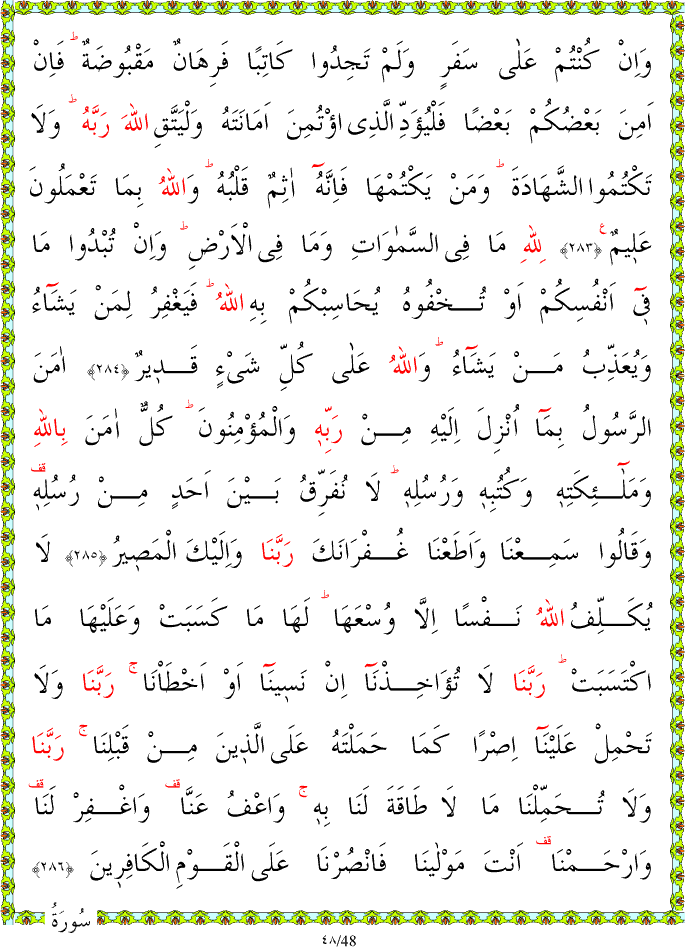 وَاِنْ كُنْتُمْ عَلٰى سَفَرٍ وَلَمْ تَجِدُوا كَاتِبًا فَرِهَانٌ مَقْبُوضَةٌ ۜ فَاِنْ
اَمِنَ بَعْضُكُمْ بَعْضًا فَلْيُؤَدِّ الَّذِى اؤْتُمِنَ اَمَانَتَهُ وَلْيَتَّقِ اللّٰهَ رَبَّهُ ؕ وَلَا
تَكْتُمُوا الشَّهَادَةَ ؕ وَمَنْ يَكْتُمْهَا فَاِنَّهُٓ اٰثِمٌ قَلْبُهُ ؕ وَاللّٰهُ بِمَا تَعْمَلُونَ
عَلِيمٌ ﴿٢٨٣﴾ لِلّٰهِ مَا فِى السَّمٰوَاتِ وَمَا فِى الْاَرْضِ ؕ وَاِنْ تُبْدُوا مَا
فِىٓ اَنْفُسِكُمْ اَوْ تُخْفُوهُ يُحَاسِبْكُمْ بِهِ اللّٰهُ ؕ فَيَغْفِرُ لِمَنْ يَشَٓاءُ
وَيُعَذِّبُ مَنْ يَشَٓاءُ ؕ وَاللّٰهُ عَلٰى كُلِّ شَىْءٍ قَدِيرٌ ﴿٢٨٤﴾ اٰمَنَ
الرَّسُولُ بِمَٓا اُنْزِلَ اِلَيْهِ مِنْ رَبِّهٖ وَالْمُؤْمِنُونَ ؕ كُلٌّ اٰمَنَ بِاللّٰهِ
وَمَلٰٓئِكَتِهٖ وَكُتُبِهٖ وَرُسُلِهٖ ؕ لَا نُفَرِّقُ بَيْنَ اَحَدٍ مِنْ رُسُلِهٖ قف
وَقَالُوا سَمِعْنَا وَاَطَعْنَا غُفْرَانَكَ رَبَّنَا وَاِلَيْكَ الْمَصِيرُ ﴿٢٨٥﴾ لَا
يُكَلِّفُ اللّٰهُ نَفْسًا اِلَّا وُسْعَهَا ؕ لَهَا مَا كَسَبَتْ وَعَلَيْهَا مَا
اكْتَسَبَتْ ؕ رَبَّنَا لَا تُؤَاخِذْنَٓا اِنْ نَسِينَٓا اَوْ اَخْطَاْنَا ۚ رَبَّنَا وَلَا
تَحْمِلْ عَلَيْنَٓا اِصْرًا كَمَا حَمَلْتَهُ عَلَى الَّذِينَ مِنْ قَبْلِنَا ۚ رَبَّنَا
وَلَا تُحَمِّلْنَا مَا لَا طَاقَةَ لَنَا بِهٖ ۚ وَاعْفُ عَنَّا قف وَاغْفِرْ لَنَا قف
وَارْحَمْنَا قف اَنْتَ مَوْلٰينَا فَانْصُرْنَا عَلَى الْقَوْمِ الْكَافِرِينَ ﴿٢٨٦﴾
سُورَةُ
٤٨/48